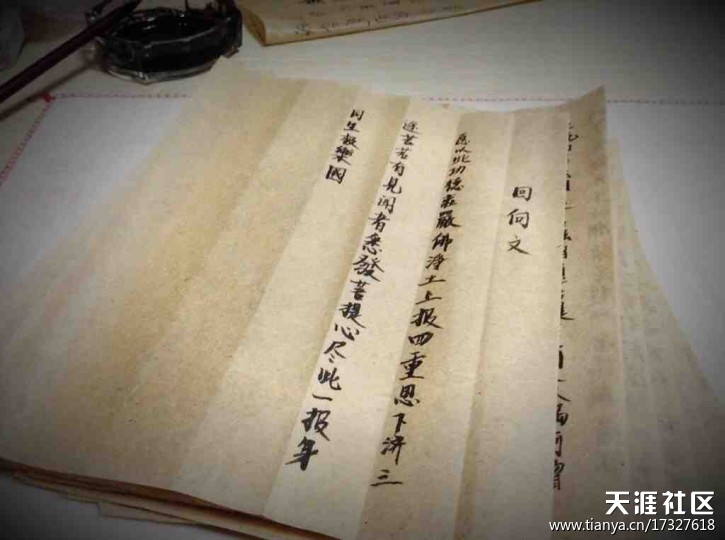 回向文
愿以此功德莊嚴佛淨土上报四重恩下济三
途苦若有見闻者悉發菩提心尽此一报身
同生极樂國
天涯社区
www.tianya.cn/17327618